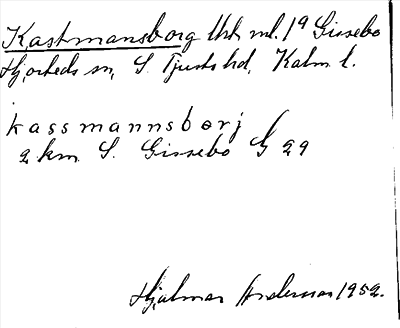 Kastmansborg lht, ml. 1ª Gissebo
Hjorteds sn, S. Tjusts hd, Kalm. l.
kassmannsborj
2 km S. Gissebo G 29
Hjalmar Anderman 1952.